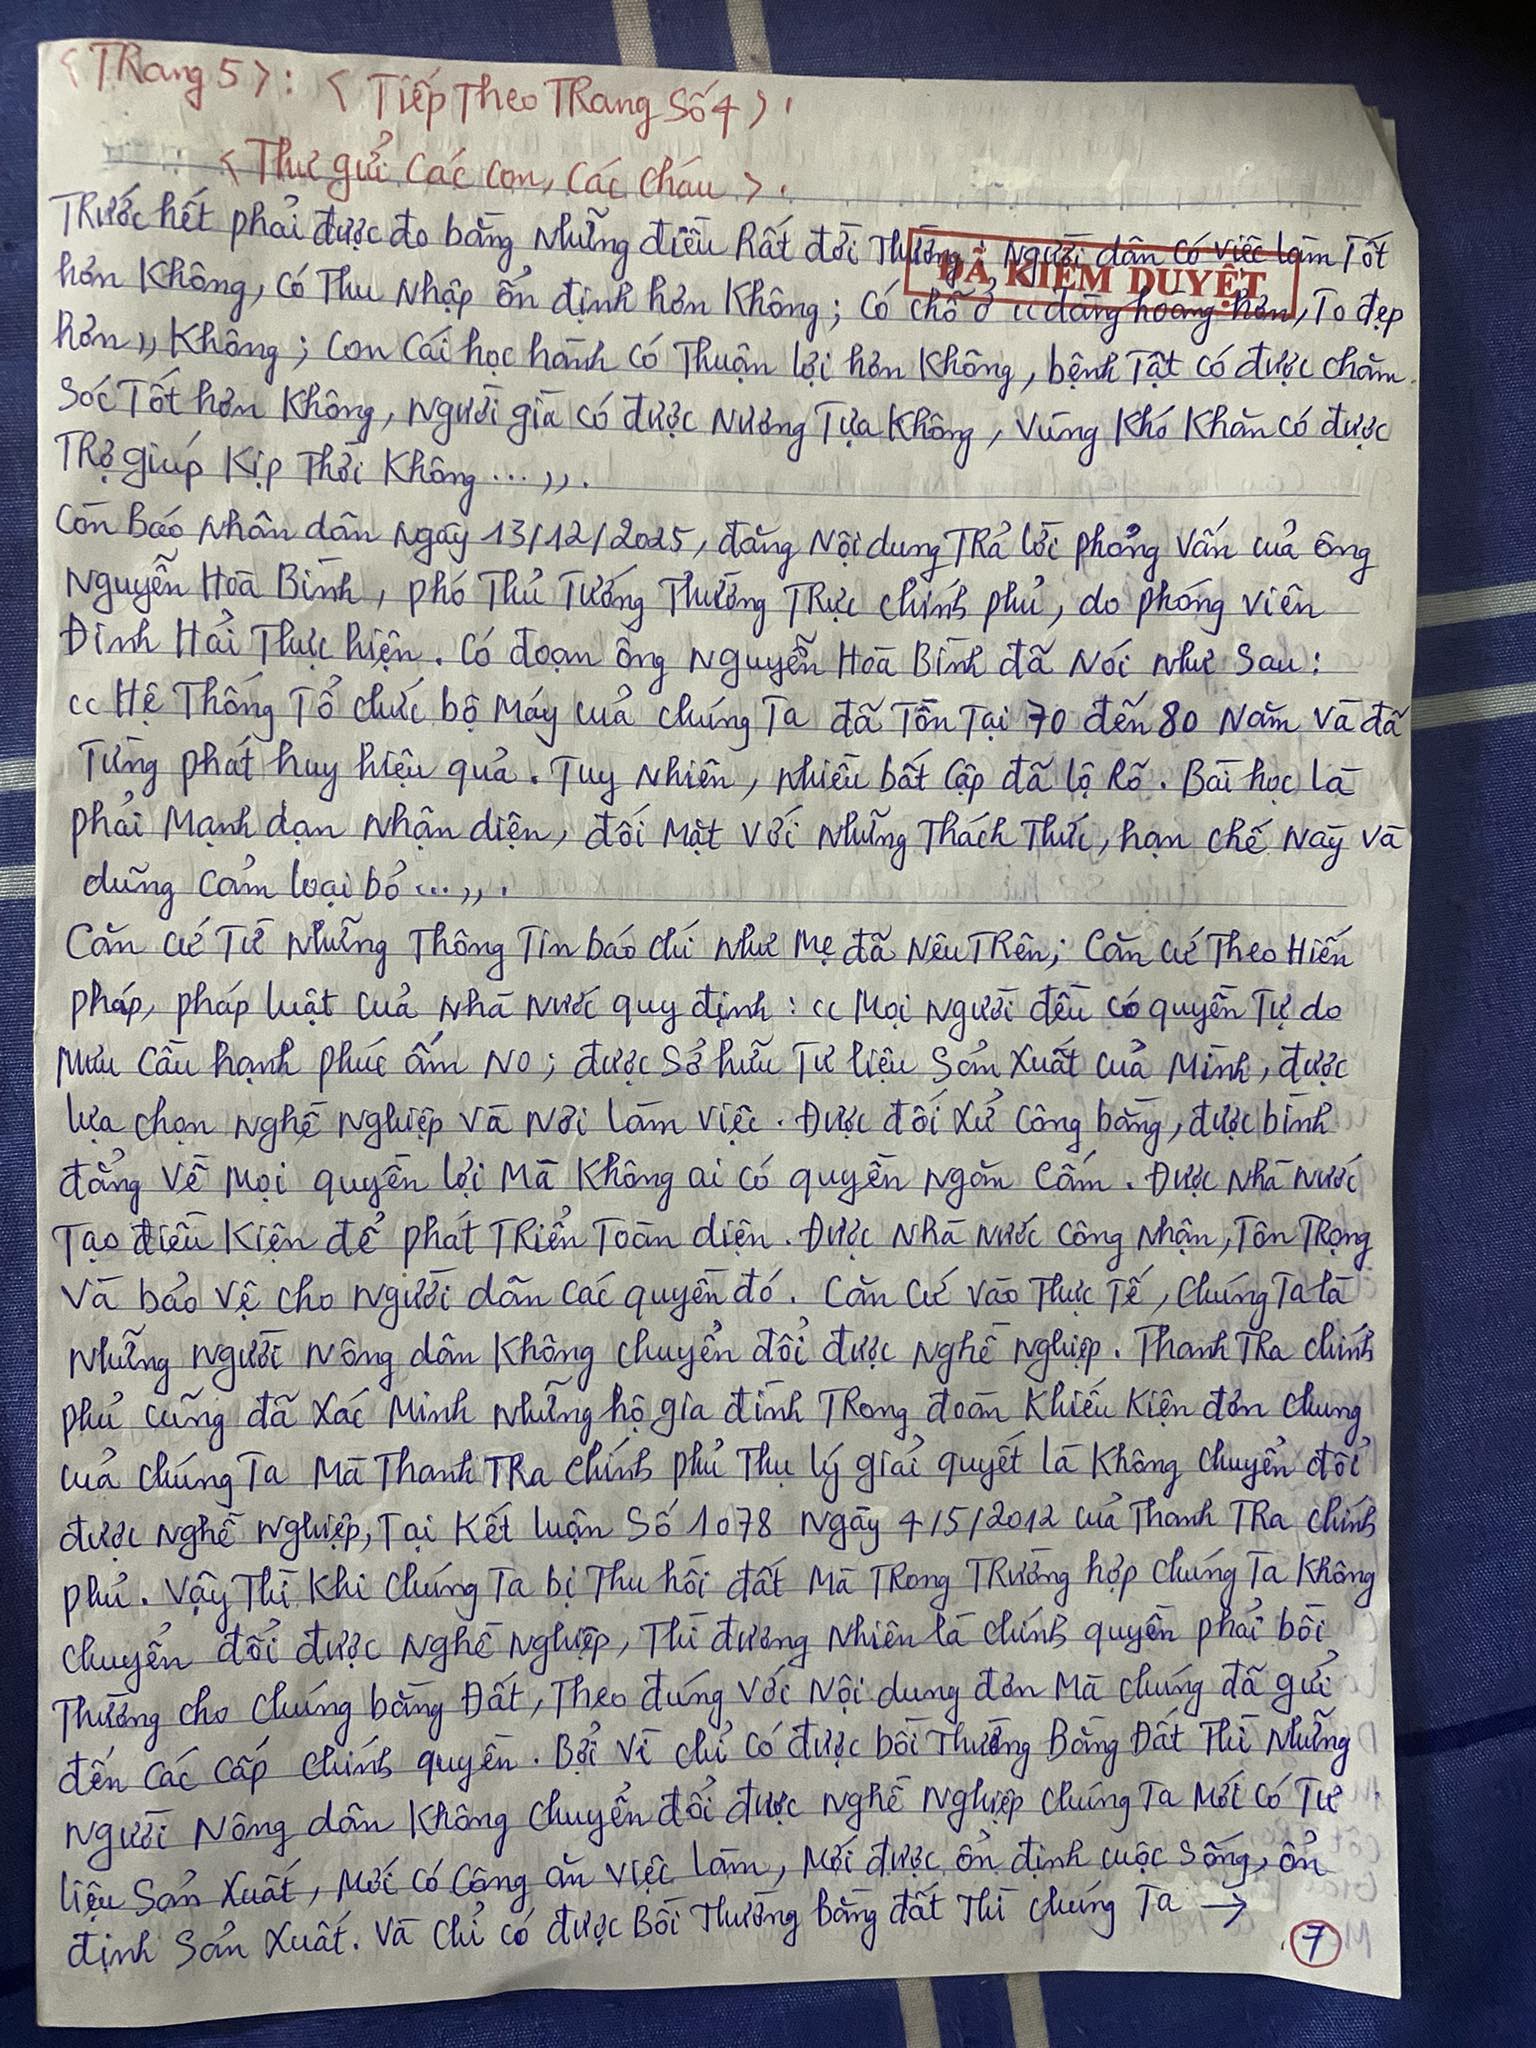 <Trang 5>: <Tiếp Theo Trang Số 4>.
<Thư gửi các con, các cháu>.
Trước hết phải được đo bằng những điều rất đời thường: Người dân có việc làm tốt
ĐÃ KIỂM DUYỆT
hơn không, có thu nhập ổn định hơn không; có chỗ ở "đàng hoàng hơn, to đẹp
hơn" không; con cái học hành có thuận lợi hơn không, bệnh tật có được chăm
sóc tốt hơn không, người già có được nương tựa không, vùng khó khăn có được
trợ giúp kịp thời không...".
Còn báo Nhân dân ngày 13/12/2025, đăng nội dung trả lời phỏng vấn của ông
Nguyễn Hoà Bình, phó Thủ Tướng Thường Trực chính phủ, do phóng viên
Đinh Hải thực hiện. Có đoạn ông Nguyễn Hoà Bình đã nói như sau:
"Hệ thống tổ chức bộ máy của chúng ta đã tồn tại 70 đến 80 năm và đã
từng phát huy hiệu quả. Tuy nhiên, nhiều bất cập đã lộ rõ. Bài học là
phải mạnh dạn nhận diện, đối mặt với những thách thức, hạn chế này và
dũng cảm loại bỏ...".
Căn cứ từ những thông tin báo chí như mẹ đã nêu trên; căn cứ theo Hiến
pháp, pháp luật của nhà nước quy định: "Mọi người đều có quyền tự do
mưu cầu hạnh phúc ấm no; được sở hữu tư liệu sản xuất của mình, được
lựa chọn nghề nghiệp và nơi làm việc. Được đối xử công bằng, được bình
đẳng về mọi quyền lợi mà không ai có quyền ngăn cấm. Được nhà nước
tạo điều kiện để phát triển toàn diện. Được nhà nước công nhận, tôn trọng
và bảo vệ cho người dân các quyền đó. Căn cứ vào thực tế, chúng ta là
những người nông dân không chuyển đổi được nghề nghiệp. Thanh Tra chính
phủ cũng đã xác minh những hộ gia đình trong đoàn khiếu kiện đơn chung
của chúng ta mà Thanh Tra chính phủ thụ lý giải quyết là không chuyển đổi
được nghề nghiệp, tại kết luận số 1078 ngày 4/5/2012 của Thanh Tra chính
phủ. Vậy thì khi chúng ta bị thu hồi đất mà trong trường hợp chúng ta không
chuyển đổi được nghề nghiệp, thì đương nhiên là chính quyền phải bồi
thường cho chúng bằng Đất, theo đúng với nội dung đơn mà chúng đã gửi
đến các cấp chính quyền. Bởi vì chỉ có được bồi thường Bằng Đất thì những
người nông dân không chuyển đổi được nghề nghiệp chúng ta mới có tư
liệu sản xuất, mới có công ăn việc làm, mới được ổn định cuộc sống, ổn
định sản xuất. Và chỉ có được Bồi thường bằng đất thì chúng ta →
7